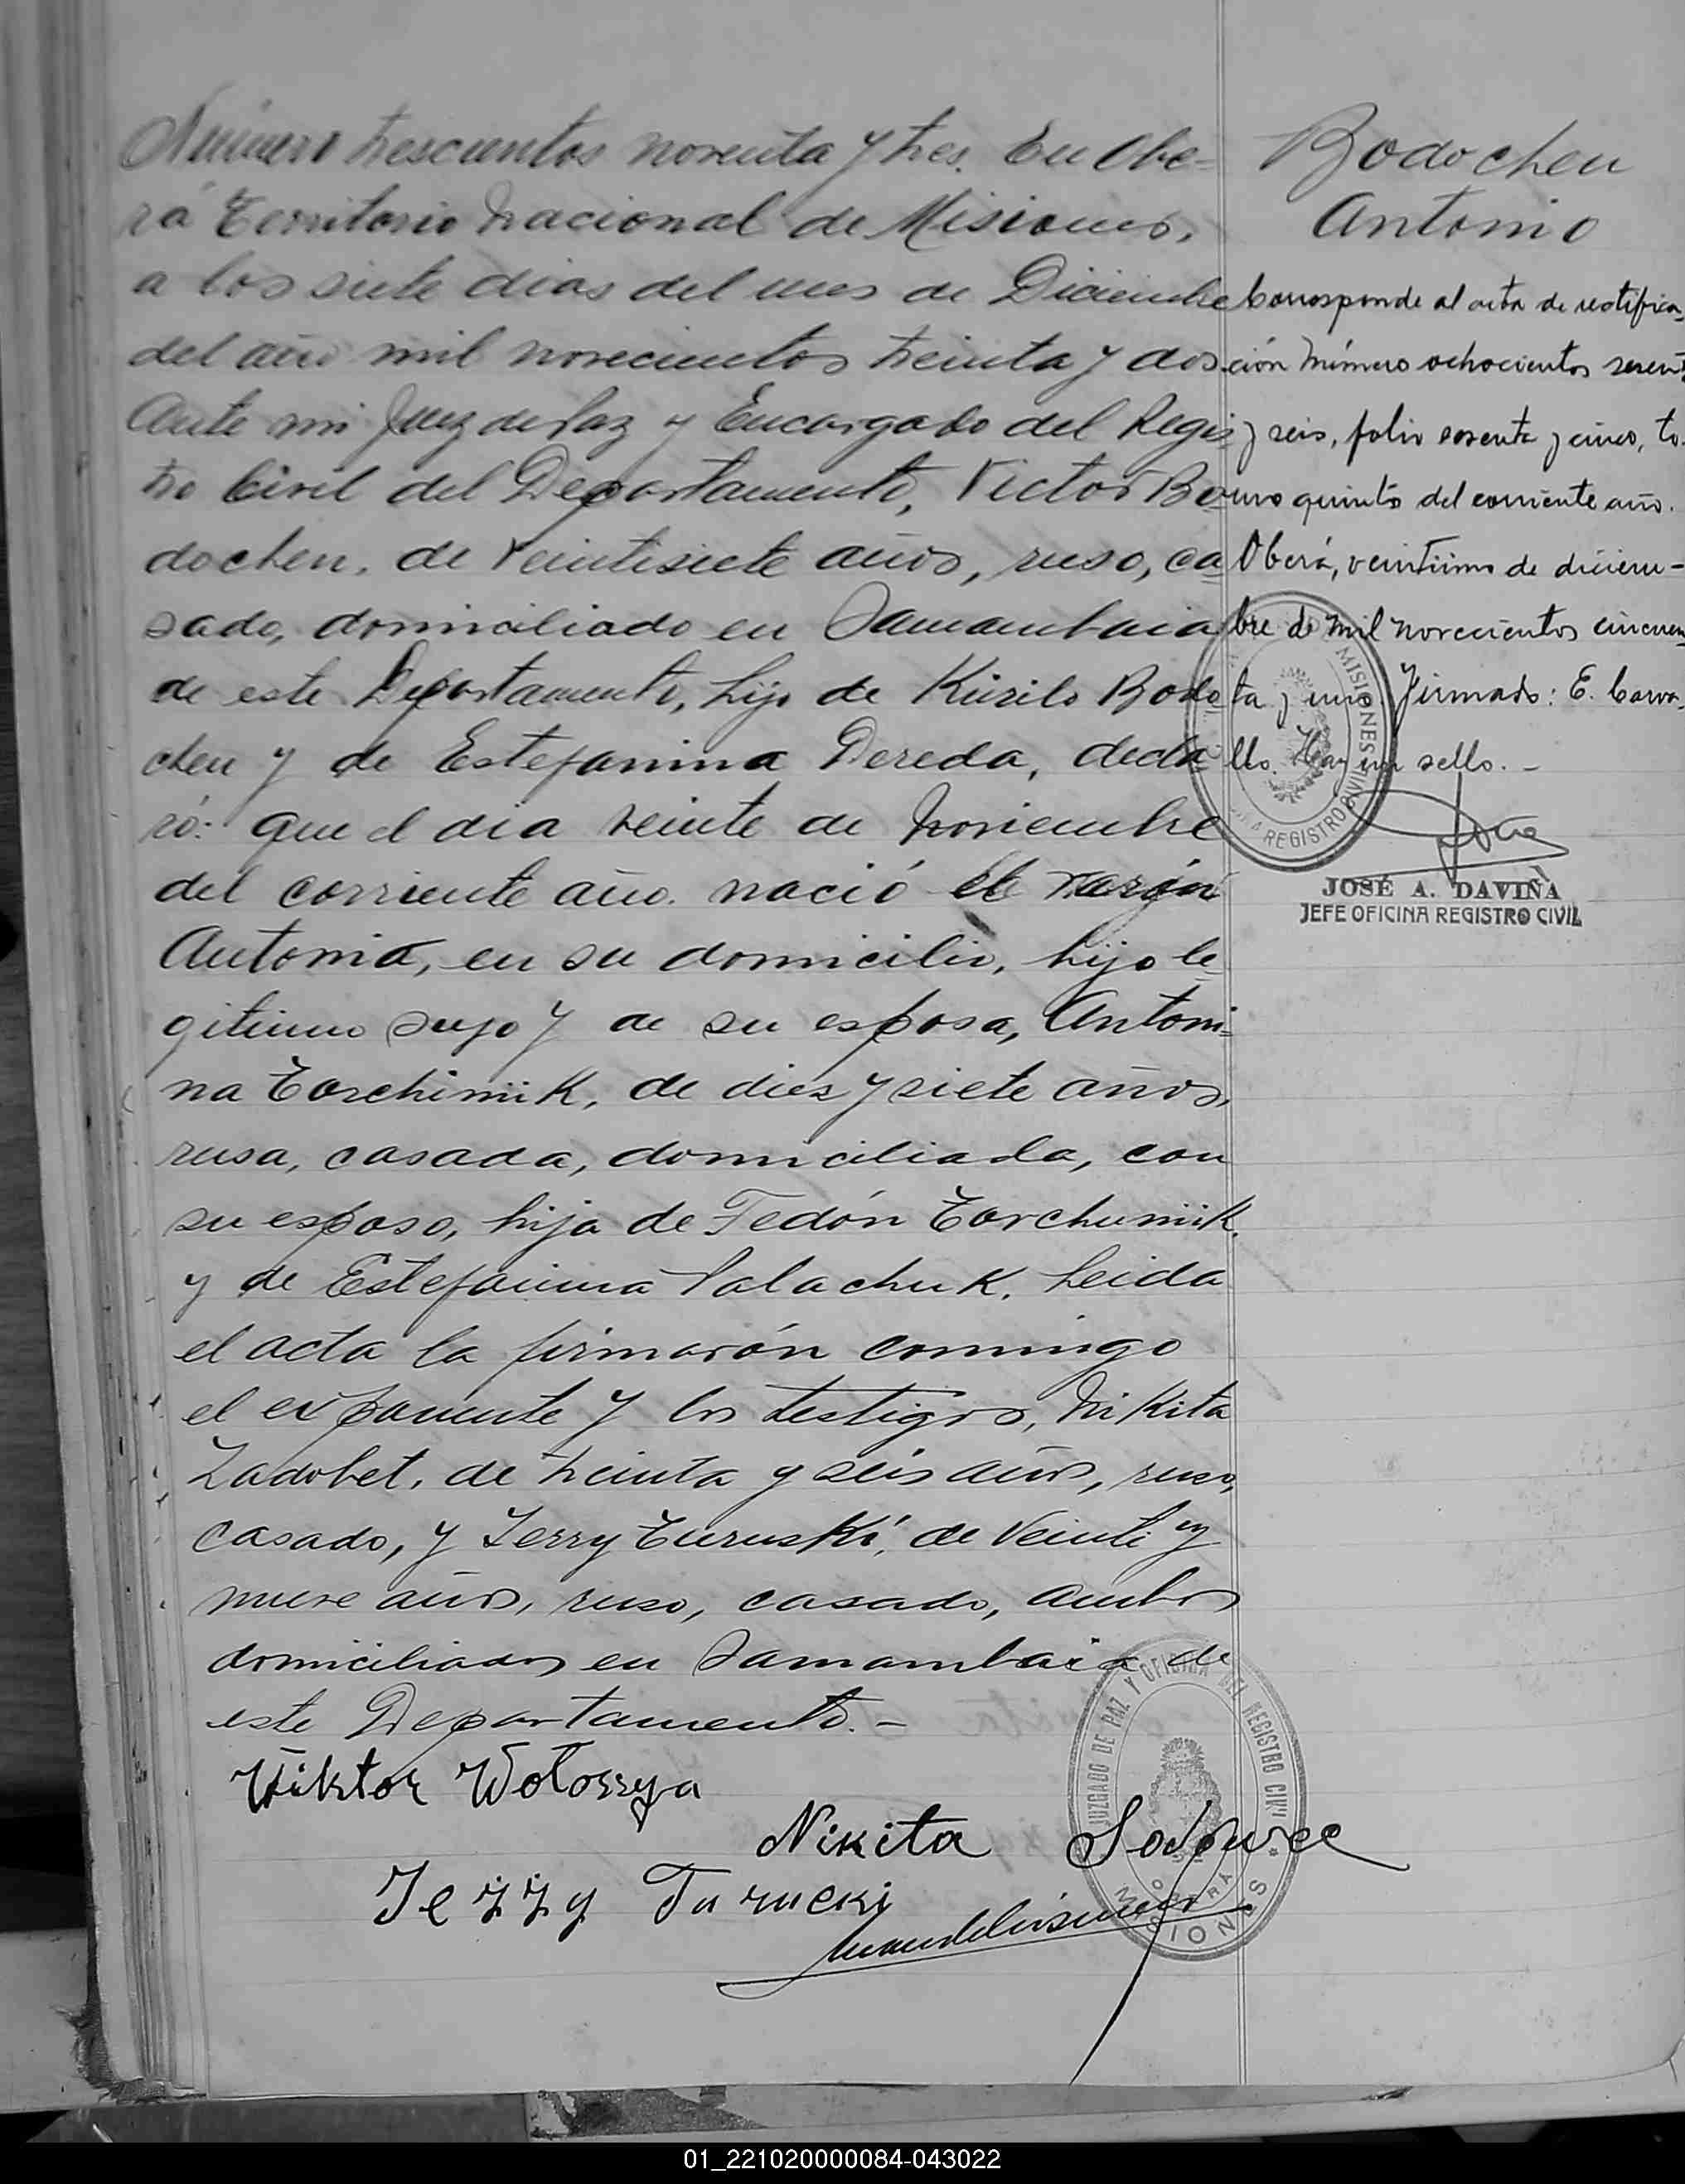 Número trescientos noventa y tres. En Obe=
rá Territorio Nacional de Misiones,
a los siete dias del mes de Diciembre
del año mil novecientos treinta y dos.
Ante mi Juez de Paz y Encargado del Regis
tro Civil del Departamento, Victor Bo
dochen, de veintisiete años, ruso, ca
sado, domiciliado en Samambaia
de este Departamento, hijo de Kirilo Bodo
chen y de Estefanina Dereda, decla
ró: que el dia veinte de Noviembre
del corriente año. nació el varón
Antonio, en su domicilio, hijo le
gitimo suyo y de su esposa, Antoni=
na Torchiniik, de diez y siete años,
rusa, casada, domiciliada, con
su esposo, hija de Fedón Torchuniik,
y de Estefanina Palachuk. Leida
el acta la firmarón conmigo
el exponente y los testigos, Nikita
Zadobet, de treinta y seis años, ruso,
casado, y Jerry Turuski, de veinti y
nueve años, ruso, casado, ambos
domiciliados en Samambaia de
este Departamento.-
Wiktor Wołoszyn
Nikita
Jeżży Turucki
Bodochen
Antonio
Corresponde al acta de rectifica
ción número ochocientos
y seis, folio sesenta y cinco, to
mo quinto del corriente año.
Oberá, veintiuno de diciem-
bre de mil novecientos cincuen
ta y uno. Firmado: E. Carva
llo. Hay un sello.-
MISIONES
REGISTRO CIVIL
JOSÉ A. DAVIÑA
JEFE OFICINA REGISTRO CIVIL
JUZGADO DE PAZ Y OFICINA DEL REGISTRO CIVIL
OBERÁ
MISIONES
01_221020000084-043022